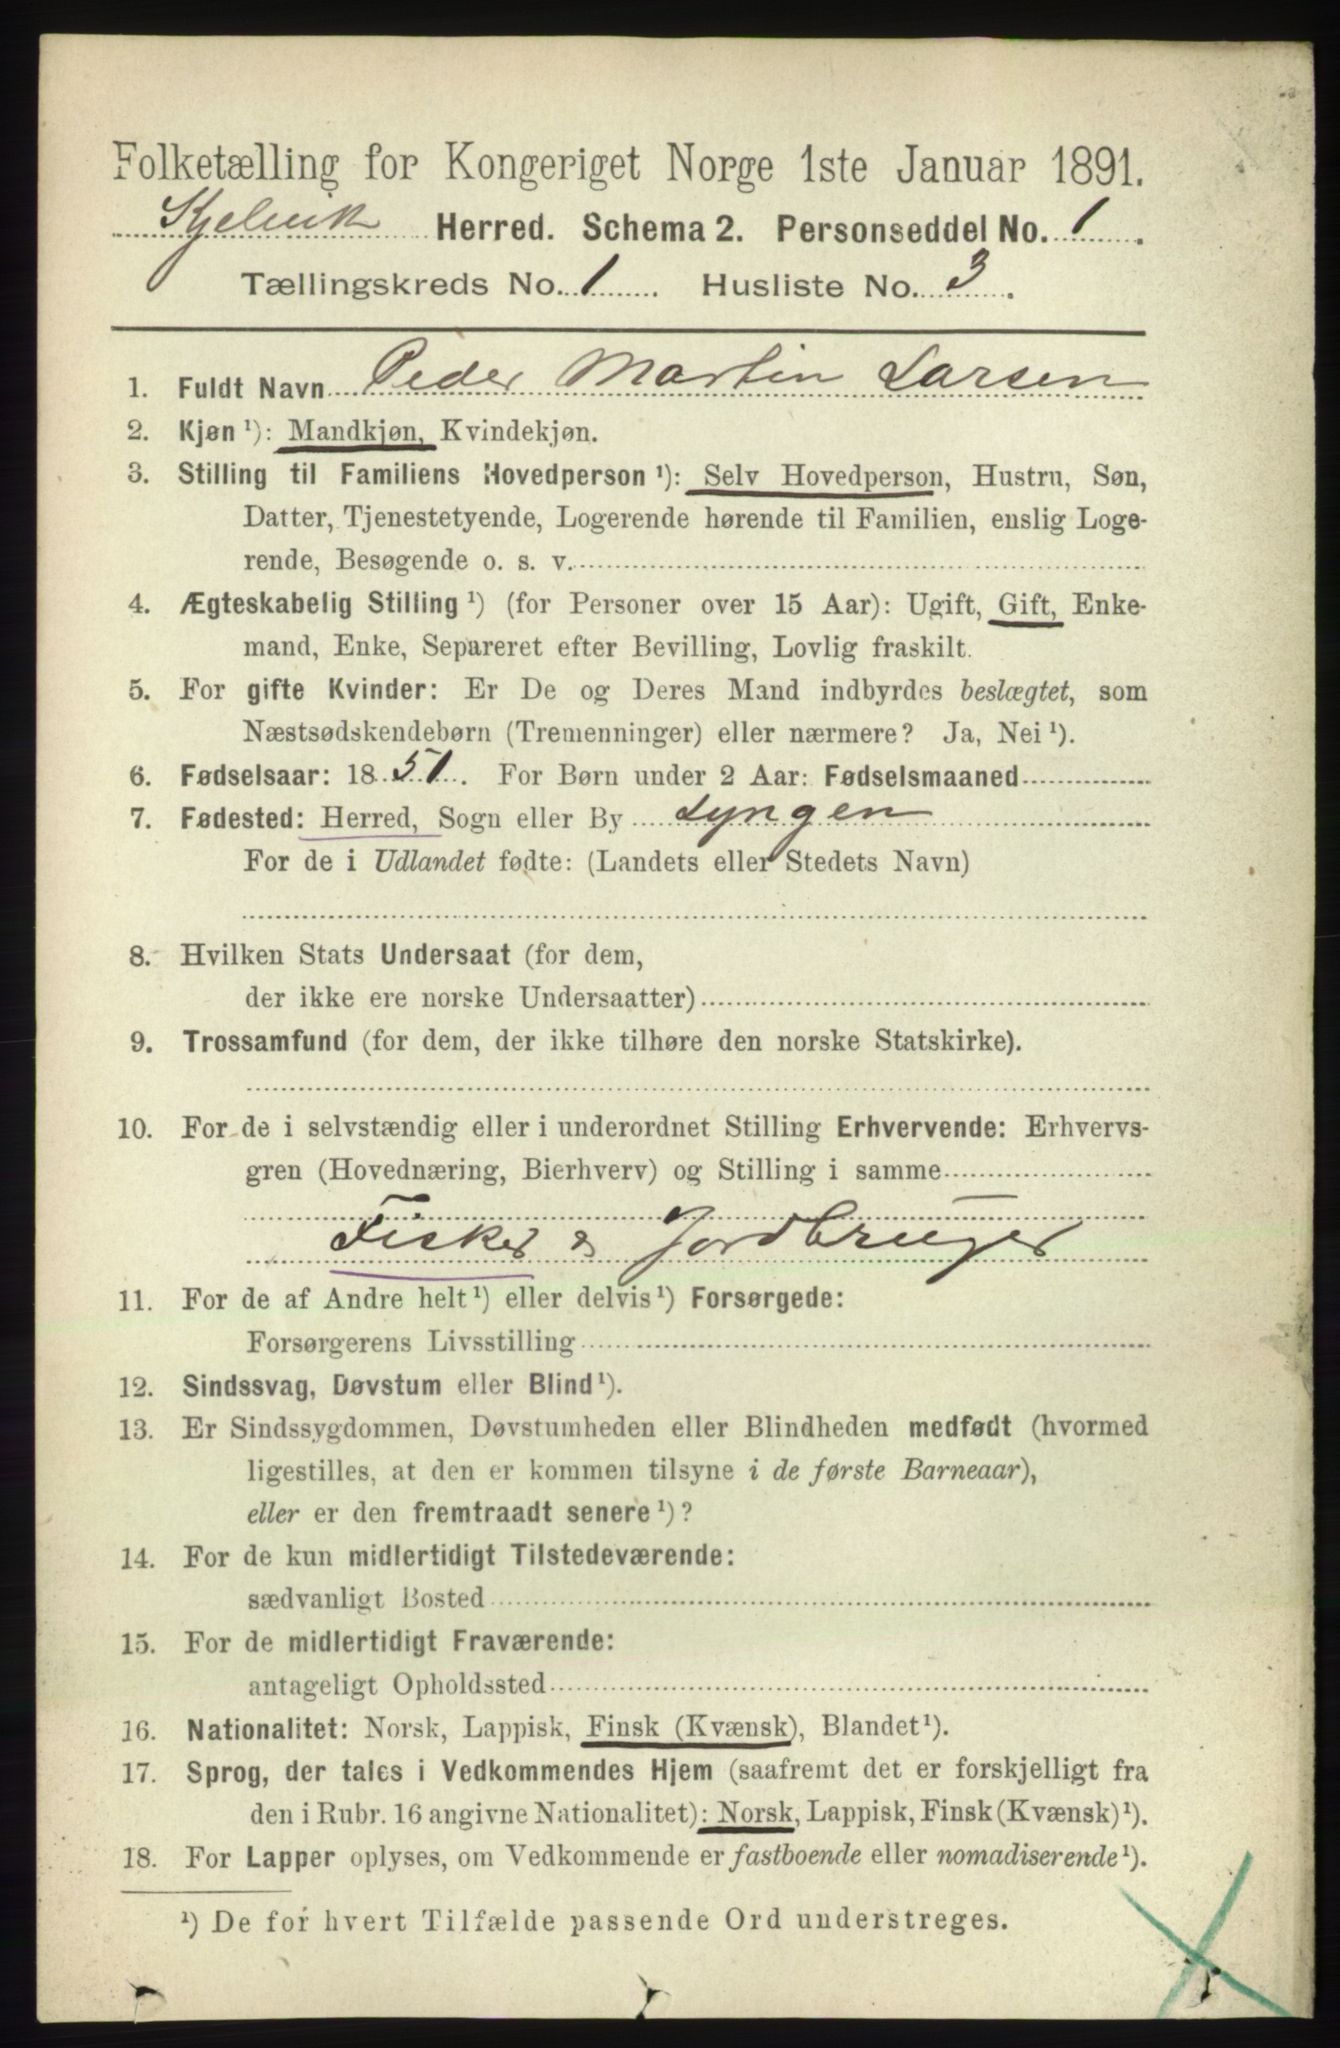 Folketælling for Kongeriget Norge 1ste Januar 1891.
Kjelvik Herred. Schema 2. Personseddel No. 1.
Tællingskreds No. 1. Husliste No. 3.
1. Fuldt Navn Peder Martin Larsen
2. Kjøn ¹): Mandkjøn, Kvindekjøn.
3. Stilling til Familiens Hovedperson ¹): Selv Hovedperson, Hustru, Søn,
Datter, Tjenestetyende, Logerende hørende til Familien, enslig Loge-
rende, Besøgende o. s. v.
4. Ægteskabelig Stilling ¹) (for Personer over 15 Aar): Ugift, Gift, Enke-
mand, Enke, Separeret efter Bevilling, Lovlig fraskilt.
5. For gifte Kvinder: Er De og Deres Mand indbyrdes beslægtet, som
Næstsødskendebørn (Tremenninger) eller nærmere? Ja, Nei ¹).
6. Fødselsaar: 1851. For Børn under 2 Aar: Fødselsmaaned
7. Fødested: Herred, Sogn eller By Lyngen
For de i Udlandet fødte: (Landets eller Stedets Navn)
8. Hvilken Stats Undersaat (for dem,
der ikke ere norske Undersaatter)
9. Trossamfund (for dem, der ikke tilhøre den norske Statskirke).
10. For de i selvstændig eller i underordnet Stilling Erhvervende: Erhvervs-
gren (Hovednæring, Bierhverv) og Stilling i samme
Fisker & Jordbruger
11. For de af Andre helt ¹) eller delvis ¹) Forsørgede:
Forsørgerens Livsstilling
12. Sindssvag, Døvstum eller Blind ¹).
13. Er Sindssygdommen, Døvstumheden eller Blindheden medfødt (hvormed
ligestilles, at den er kommen tilsyne i de første Barneaar),
eller er den fremtraadt senere ¹)?
14. For de kun midlertidigt Tilstedeværende:
sædvanligt Bosted
15. For de midlertidigt Fraværende:
antageligt Opholdssted
16. Nationalitet: Norsk, Lappisk, Finsk (Kvænsk), Blandet ¹).
17. Sprog, der tales i Vedkommendes Hjem (saafremt det er forskjelligt fra
den i Rubr. 16 angivne Nationalitet): Norsk, Lappisk, Finsk (Kvænsk) ¹).
18. For Lapper oplyses, om Vedkommende er fastboende eller nomadiserende ¹).
¹) De for hvert Tilfælde passende Ord understreges.